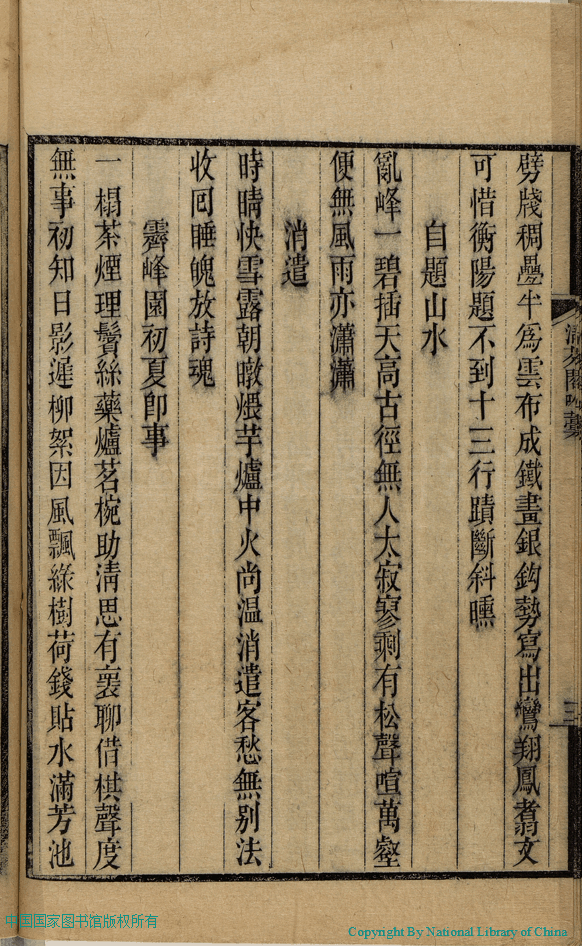 劈牋稠疊半爲雲布成鐵畫銀鈎勢寫出鸞翔鳳翥文
可惜衡陽題不到十三行蹟斷斜曛
自題山水
亂峰一碧插天高古徑無人太寂寥剩有松聲喧萬壑
便無風雨亦瀟瀟
消遣
時晴快雪露朝暾煨芋爐中火尚温消遣客愁無别法
收回睡魄放詩魂
霽峰園初夏卽事
一榻茶煙理鬢絲藥爐茗椀助清思有裏聊借棋聲度
無事初知日影遲柳絮因風飄綠樹荷錢貼水滿芳池
三
中国国家图书馆版权所有
Copyright By National Library of China